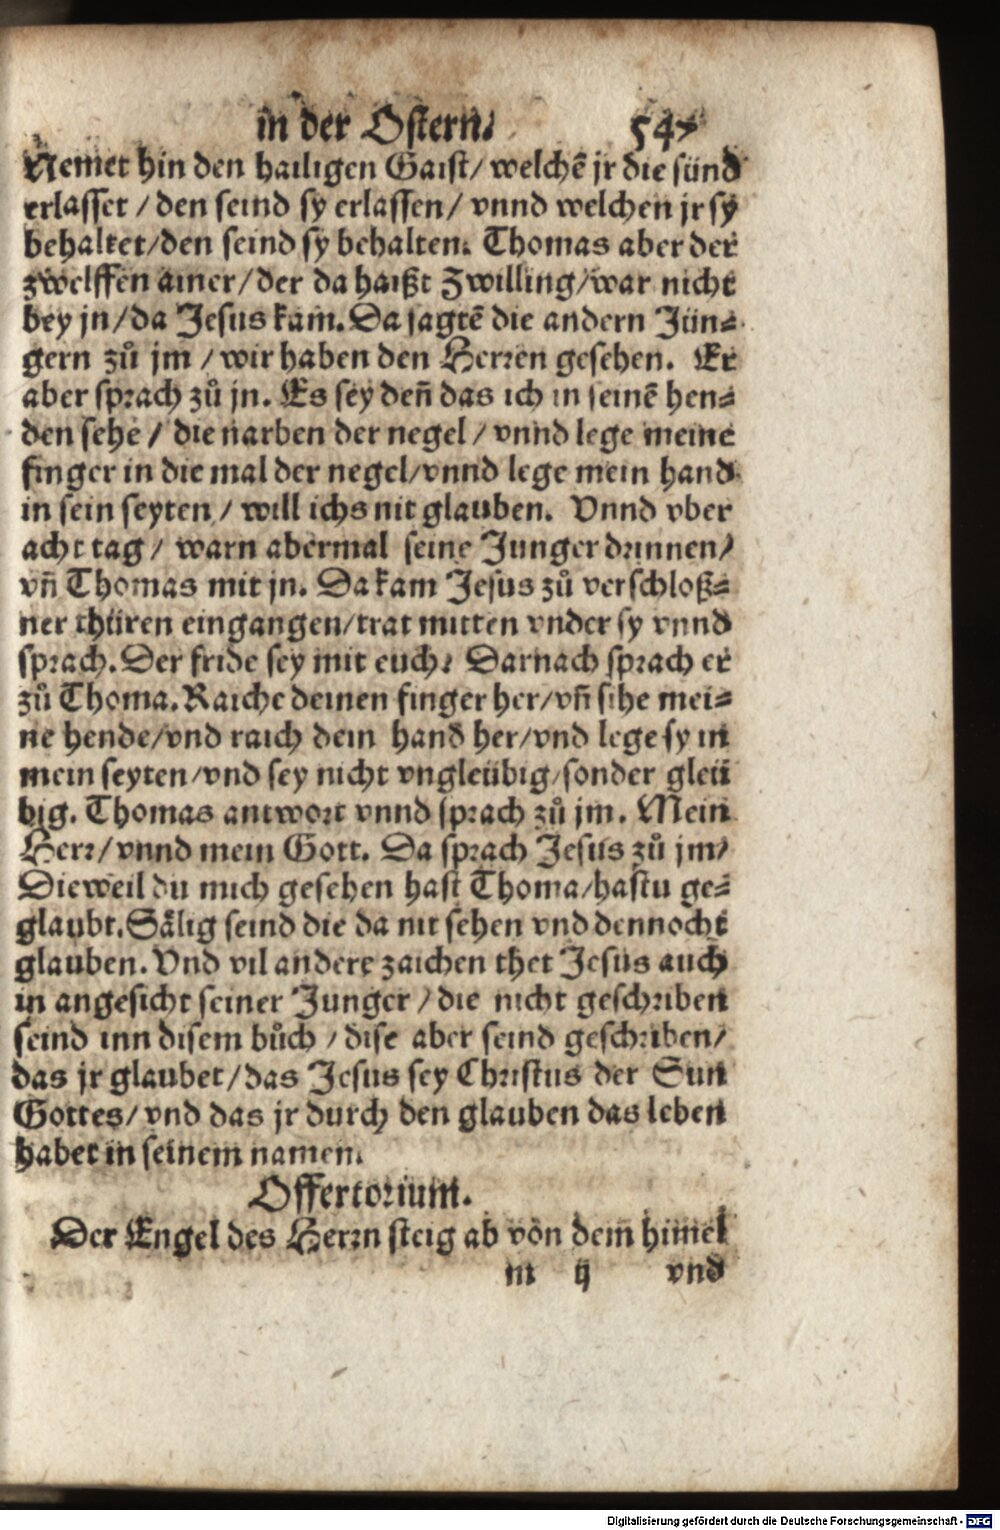 in der Ostern. 547
Nemet hin den hailigen Gaist/ welchē jr die sünd
erlasset / den seind sy erlassen/ vnnd welchen jr sy
behaltet/den seind sy behalten. Thomas aber der
zwelffen ainer/der da haißt Zwilling/war nicht
bey jn/da Jesus kam. Da sagtē die andern Jün-
gern zů jm / wir haben den Herren gesehen. Er
aber sprach zů jn. Es sey deñ das ich in seinē hen-
den sehe / die narben der negel / vnnd lege meine
finger in die mal der negel/vnnd lege mein hand
in sein seyten / will ichs nit glauben. Vnnd vber
acht tag / warn abermal seine Junger drinnen/
vñ Thomas mit jn. Da kam Jesus zů verschloß-
ner thüren eingangen/trat mitten vnder sy vnnd
sprach. Der fride sey mit euch. Darnach sprach er
zů Thoma. Raiche deinen finger her/vñ sihe mei-
ne hende/vnd raich dein hand her/vnd lege sy in
mein seyten/vnd sey nicht vngleübig/sonder gleü
big. Thomas antwort vnnd sprach zů jm. Mein
Herr/vnnd mein Gott. Da sprach Jesus zů jm/
Dieweil du mich gesehen hast Thoma/hastu ge-
glaubt. Sälig seind die da nit sehen vnd dennocht
glauben. Vnd vil andere zaichen thet Jesus auch
in angesicht seiner Junger / die nicht geschriben
seind inn disem bůch / dise aber seind geschriben/
das jr glaubet/das Jesus sey Christus der Sun
Gottes/vnd das jr durch den glauben das leben
habet in seinem namen.
Offertorium.
Der Engel des Herrn steig ab von dem himel
m ij vnd
Digitalisierung gefördert durch die Deutsche Forschungsgemeinschaft - DFG